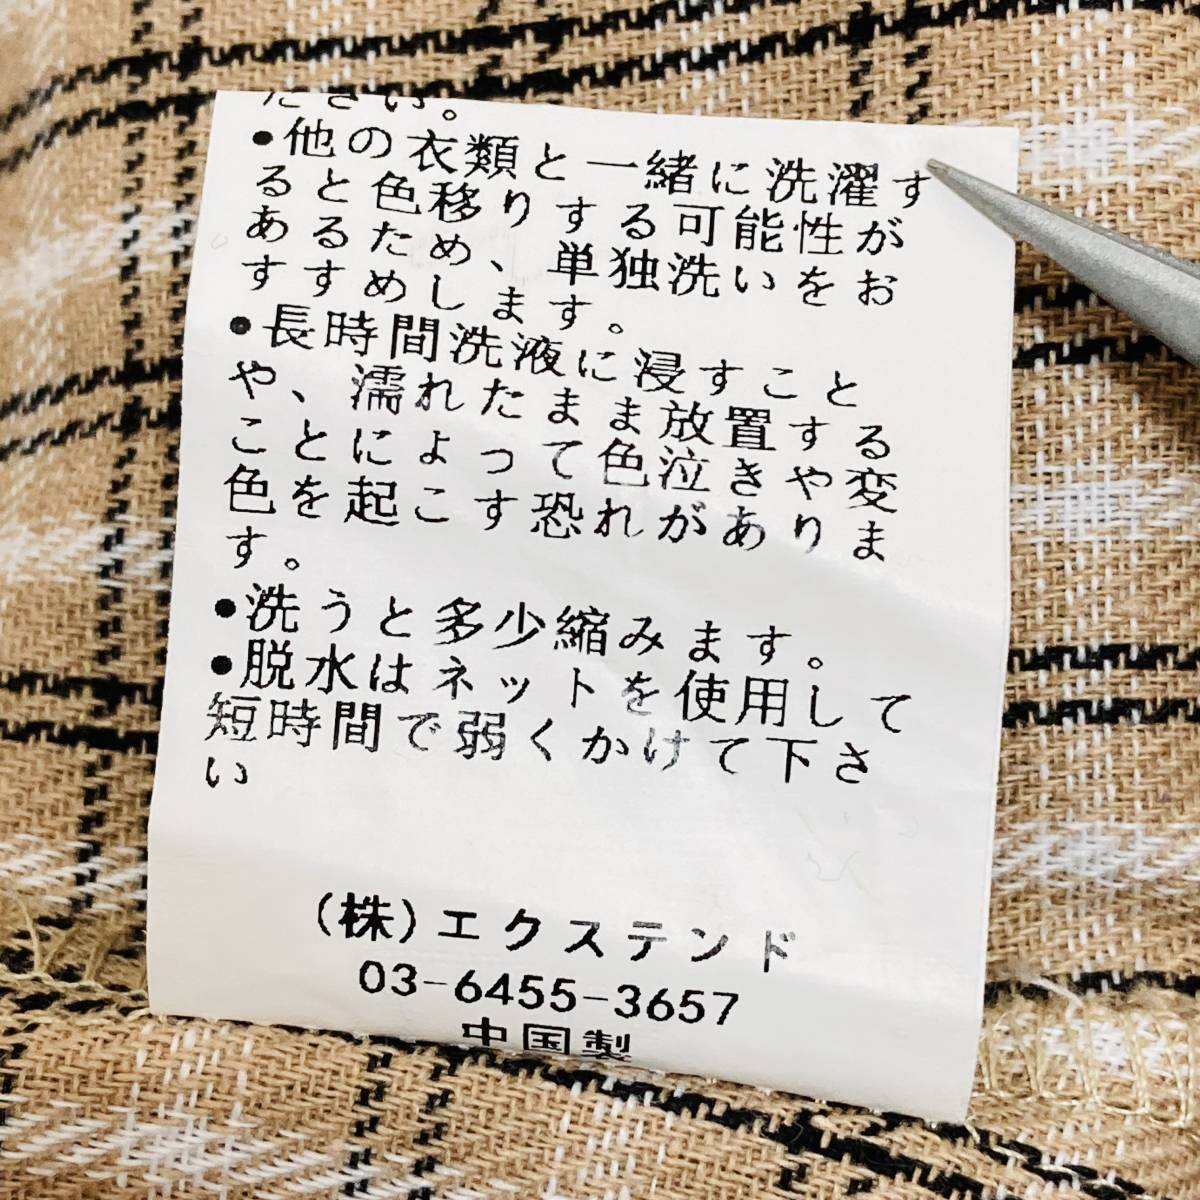 ださい。
●他の衣類と一緒に洗濯す
ると色移りする可能性が
あるため、単独洗いをお
すすめします。
●長時間洗液に浸すこと
や、濡れたまま放置する
ことによって色泣きや変
色を起こす恐れがありま
す。
●洗うと多少縮みます。
●脱水はネットを使用して
短時間で弱くかけて下さ
い
(株)エクステンド
03-6455-3657
中国製